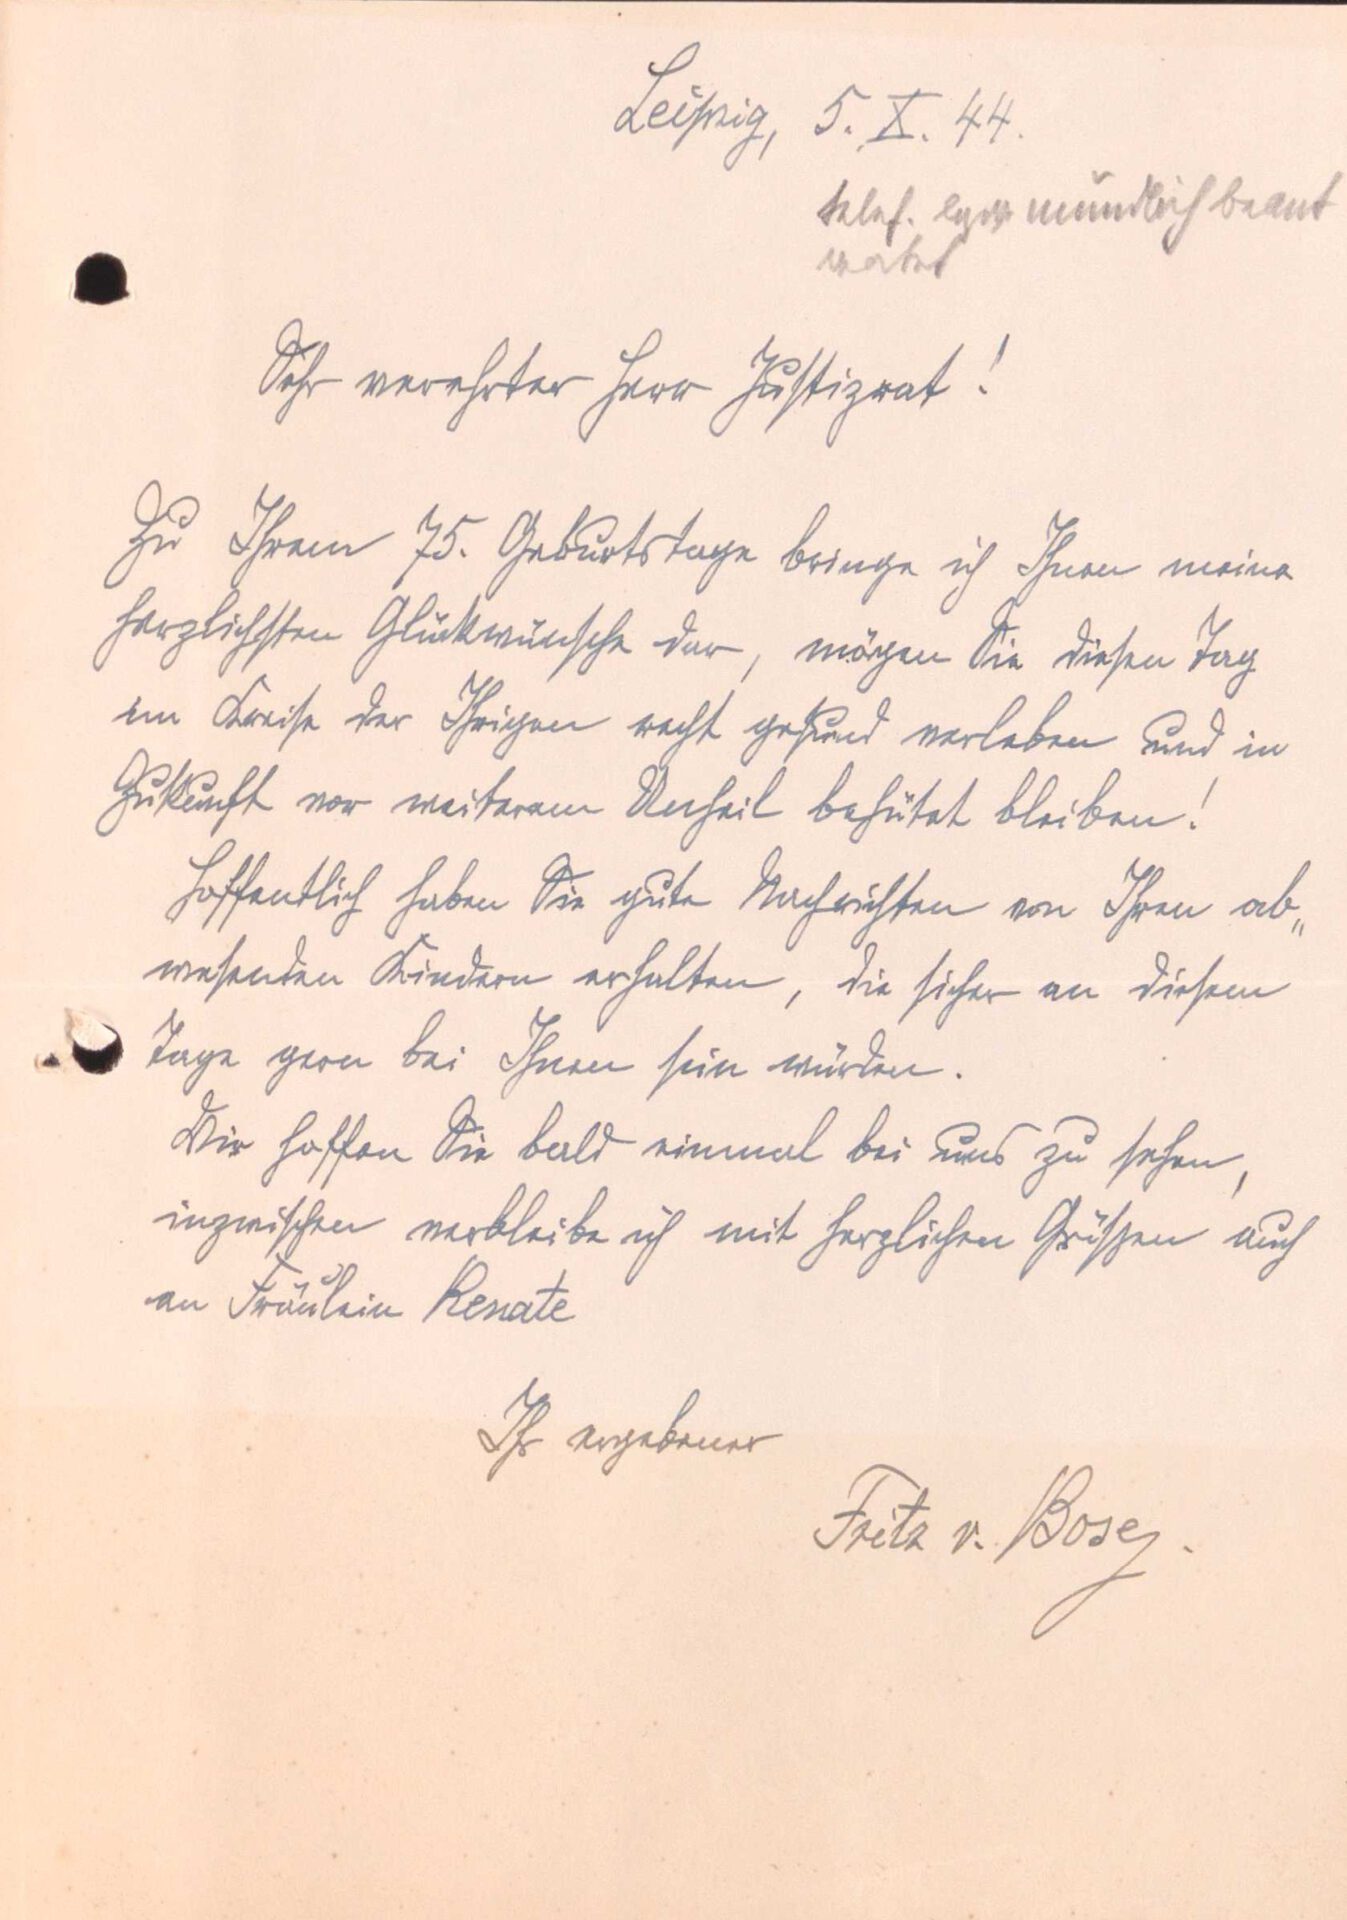 Leipzig, 5. X. 44.
telef. bzw mündlich beant
wortet
Sehr verehrter Herr Justizrat!
Zu Ihrem 75. Geburtstage bringe ich Ihnen meine
herzlichsten Glückwünsche dar, mögen Sie diesen Tag
im Kreise der Ihrigen recht gesund verleben und in
Zukunft vor weiterem Unheil behütet bleiben!
Hoffentlich haben Sie gute Nachrichten von Ihren ab„
wesenden Kindern erhalten, die sicher an diesem
Tage gern bei Ihnen sein würden.
Wir hoffen Sie bald einmal bei uns zu sehen,
inzwischen verbleibe ich mit herzlichen Grüßen auch
an Fräulein Renate
Ihr ergebener
Fritz v. Bose.